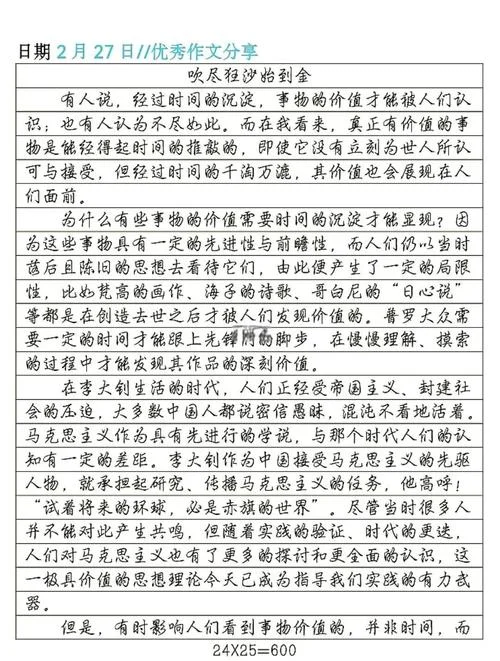 日期 2 月 27 日//优秀作文分享
吹尽狂沙始到金
有人说，经过时间的沉淀，事物的价值才能被人们认
识；也有人认为不尽如此。而在我看来，真正有价值的事
物是能经得起时间的推敲的，即使它没有立刻为世人所认
可与接受，但经过时间的千淘万漉，其价值也会展现在人
们面前。
为什么有些事物的价值需要时间的沉淀才能显现？因
为这些事物具有一定的先进性与前瞻性，而人们仍以当时
落后且陈旧的思想去看待它们，由此便产生了一定的局限
性，比如梵高的画作、海子的诗歌、哥白尼的“日心说”
等都是在创造去世之后才被人们发现价值的。普罗大众需
要一定的时间才能跟上先锋的脚步，在慢慢理解、摸索
的过程中才能发现其作品的深刻价值。
在李大钊生活的时代，人们正经受帝国主义、封建社
会的压迫，大多数中国人都说密信愚昧，混沌不看地活着。
马克思主义作为具有先进行的学说，与那个时代人们的认
知有一定的差距。李大钊作为中国接受马克思主义的先驱
人物，就承担起研究、传播马克思主义的任务，他高呼！
“试着将来的环球，必是赤旗的世界”。尽管当时很多人
并不能对此产生共鸣，但随着实践的验证、时代的更迭，
人们对马克思主义也有了更多的探讨和更全面的认识，这
一极具价值的思想理论今天已成为指导我们实践的有力武
器。
但是，有时影响人们看到事物价值的，并非时间，而
24X25=600